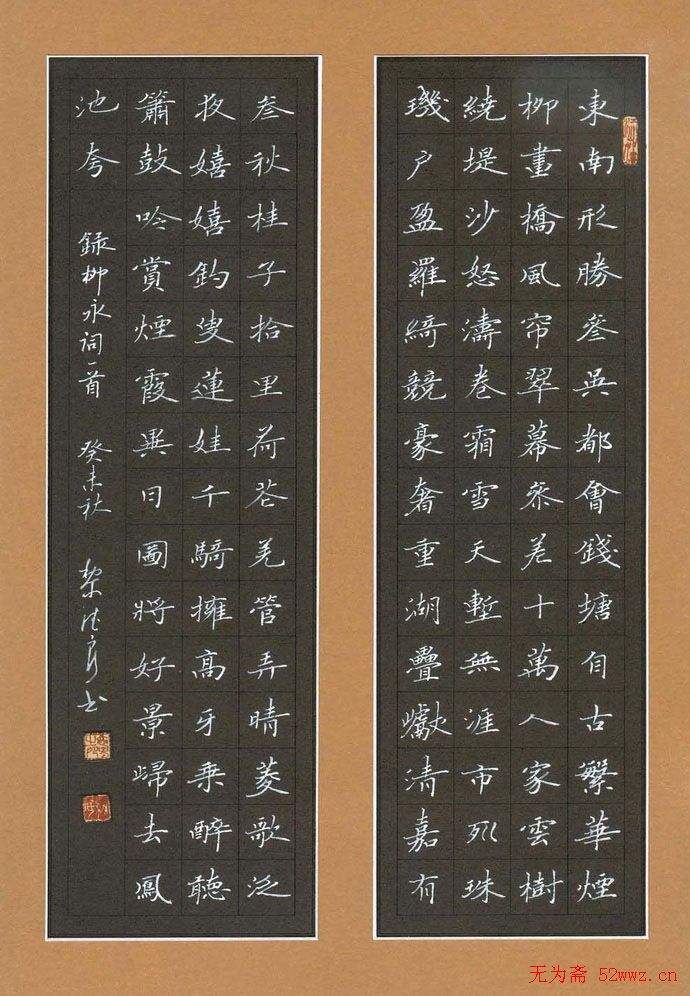 東南形勝參吳都會錢塘自古繁華煙
柳畫橋風帘翠幕叅差十萬人家雲樹
繞堤沙怒濤卷霜雪天塹無涯市列珠
璣户盈羅綺競豪奢重湖疊巘清嘉有
叁秋桂子拾里荷花羌管弄晴菱歌泛
夜嬉嬉釣叟蓮娃千騎擁高牙乘醉聽
簫鼓吟賞煙霞異日圖將好景歸去鳳
池夸 錄柳永詞一首 癸未秋 书
无为斋 52wwz.cn